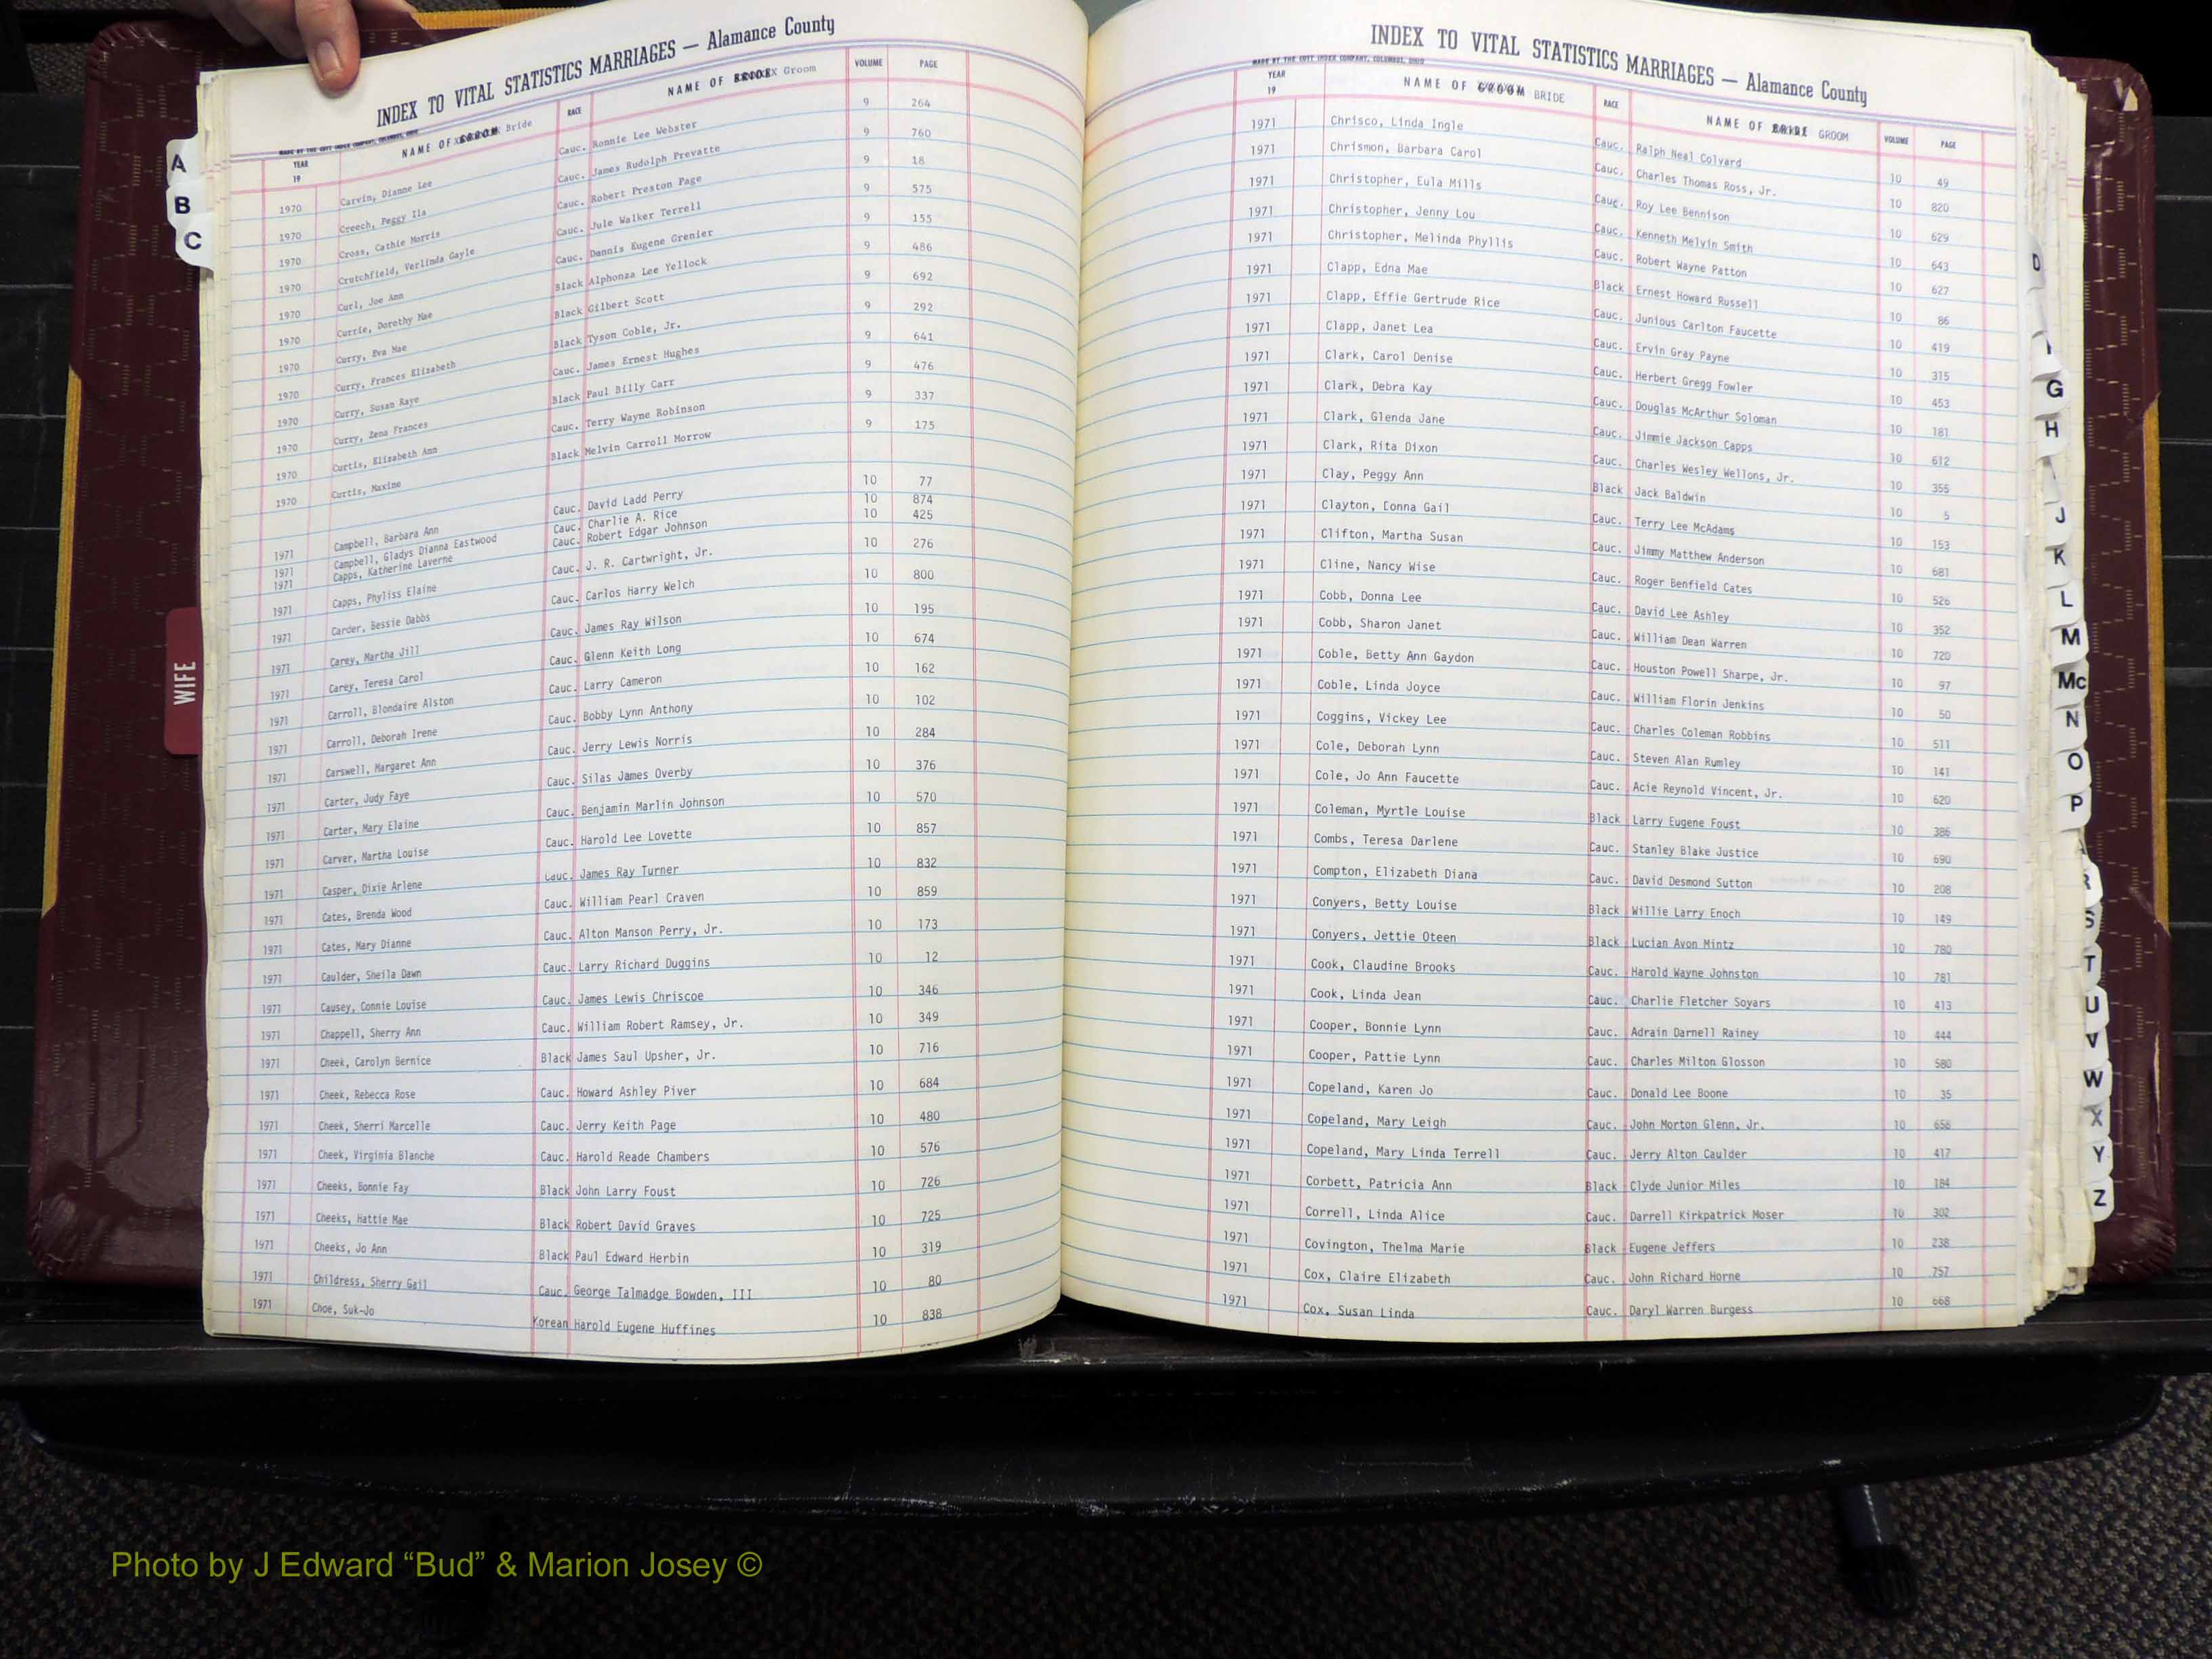 A
B
C
WIFE
INDEX TO VITAL STATISTICS MARRIAGES — Alamance County
MADE BY THE COTT INDEX COMPANY, COLUMBUS, OHIO
YEAR 19 NAME OF GROOM Bride RACE NAME OF BRIDE Groom VOLUME PAGE
1970 Carvin, Dianne Lee Cauc. Ronnie Lee Webster 9 264
1970 Creech, Peggy Ila Cauc. James Rudolph Prevatte 9 760
1970 Cross, Cathie Morris Cauc. Robert Preston Page 9 18
1970 Crutchfield, Verlinda Gayle Cauc. Jule Walker Terrell 9 575
1970 Curl, Joe Ann Cauc. Dannis Eugene Grenier 9 155
1970 Currie, Dorothy Mae Black Alphonza Lee Yellock 9 486
1970 Curry, Eva Mae Black Gilbert Scott 9 692
1970 Curry, Frances Elizabeth Black Tyson Coble, Jr. 9 292
1970 Curry, Susan Raye Cauc. James Ernest Hughes 9 641
1970 Curry, Zena Frances Black Paul Billy Carr 9 476
1970 Curtis, Elizabeth Ann Cauc. Terry Wayne Robinson 9 337
1970 Curtis, Maxine Black Melvin Carroll Morrow 9 175
1971 Campbell, Barbara Ann Cauc. David Ladd Perry 10 77
1971 Campbell, Gladys Dianna Eastwood Cauc. Charlie A. Rice 10 874
1971 Capps, Katherine Laverne Cauc. Robert Edgar Johnson 10 425
1971 Capps, Phyliss Elaine Cauc. J. R. Cartwright, Jr. 10 276
1971 Carder, Bessie Dabbs Cauc. Carlos Harry Welch 10 800
1971 Carey, Martha Jill Cauc. James Ray Wilson 10 195
1971 Carey, Teresa Carol Cauc. Glenn Keith Long 10 674
1971 Carroll, Blondaire Alston Cauc. Larry Cameron 10 162
1971 Carroll, Deborah Irene Cauc. Bobby Lynn Anthony 10 102
1971 Carswell, Margaret Ann Cauc. Jerry Lewis Norris 10 284
1971 Carter, Judy Faye Cauc. Silas James Overby 10 376
1971 Carter, Mary Elaine Cauc. Benjamin Marlin Johnson 10 570
1971 Carver, Martha Louise Cauc. Harold Lee Lovette 10 857
1971 Casper, Dixie Arlene Cauc. James Ray Turner 10 832
1971 Cates, Brenda Wood Cauc. William Pearl Craven 10 859
1971 Cates, Mary Dianne Cauc. Alton Manson Perry, Jr. 10 173
1971 Caulder, Sheila Dawn Cauc. Larry Richard Duggins 10 12
1971 Causey, Connie Louise Cauc. James Lewis Chriscoe 10 346
1971 Chappell, Sherry Ann Cauc. William Robert Ramsey, Jr. 10 349
1971 Cheek, Carolyn Bernice Black James Saul Upsher, Jr. 10 716
1971 Cheek, Rebecca Rose Cauc. Howard Ashley Piver 10 684
1971 Cheek, Sherri Marcelle Cauc. Jerry Keith Page 10 480
1971 Cheek, Virginia Blanche Cauc. Harold Reade Chambers 10 576
1971 Cheeks, Bonnie Fay Black John Larry Foust 10 726
1971 Cheeks, Hattie Mae Black Robert David Graves 10 725
1971 Cheeks, Jo Ann Black Paul Edward Herbin 10 319
1971 Childress, Sherry Gail Cauc. George Talmadge Bowden, III 10 80
1971 Choe, Suk-Jo Korean Harold Eugene Huffines 10 838
INDEX TO VITAL STATISTICS MARRIAGES — Alamance County
MADE BY THE COTT INDEX COMPANY, COLUMBUS, OHIO
YEAR 19 NAME OF GROOM BRIDE RACE NAME OF BRIDE GROOM VOLUME PAGE
1971 Chrisco, Linda Ingle Cauc. Ralph Neal Colvard 10 49
1971 Chrismon, Barbara Carol Cauc. Charles Thomas Ross, Jr. 10 820
1971 Christopher, Eula Mills Cauc. Roy Lee Bennison 10 629
1971 Christopher, Jenny Lou Cauc. Kenneth Melvin Smith 10 643
1971 Christopher, Melinda Phyllis Cauc. Robert Wayne Patton 10 627
1971 Clapp, Edna Mae Black Ernest Howard Russell 10 86
1971 Clapp, Effie Gertrude Rice Cauc. Junious Carlton Faucette 10 419
1971 Clapp, Janet Lea Cauc. Ervin Gray Payne 10 315
1971 Clark, Carol Denise Cauc. Herbert Gregg Fowler 10 453
1971 Clark, Debra Kay Cauc. Douglas McArthur Soloman 10 181
1971 Clark, Glenda Jane Cauc. Jimmie Jackson Capps 10 612
1971 Clark, Rita Dixon Cauc. Charles Wesley Wellons, Jr. 10 355
1971 Clay, Peggy Ann Black Jack Baldwin 10 5
1971 Clayton, Donna Gail Cauc. Terry Lee McAdams 10 153
1971 Clifton, Martha Susan Cauc. Jimmy Matthew Anderson 10 681
1971 Cline, Nancy Wise Cauc. Roger Benfield Cates 10 526
1971 Cobb, Donna Lee Cauc. David Lee Ashley 10 352
1971 Cobb, Sharon Janet Cauc. William Dean Warren 10 720
1971 Coble, Betty Ann Gaydon Cauc. Houston Powell Sharpe, Jr. 10 97
1971 Coble, Linda Joyce Cauc. William Florin Jenkins 10 50
1971 Coggins, Vickey Lee Cauc. Charles Coleman Robbins 10 511
1971 Cole, Deborah Lynn Cauc. Steven Alan Rumley 10 141
1971 Cole, Jo Ann Faucette Cauc. Acie Reynold Vincent, Jr. 10 620
1971 Coleman, Myrtle Louise Black Larry Eugene Foust 10 386
1971 Combs, Teresa Darlene Cauc. Stanley Blake Justice 10 690
1971 Compton, Elizabeth Diana Cauc. David Desmond Sutton 10 208
1971 Conyers, Betty Louise Black Willie Larry Enoch 10 149
1971 Conyers, Jettie Oteen Black Lucian Avon Mintz 10 780
1971 Cook, Claudine Brooks Cauc. Harold Wayne Johnston 10 781
1971 Cook, Linda Jean Cauc. Charlie Fletcher Soyars 10 413
1971 Cooper, Bonnie Lynn Cauc. Adrain Darnell Rainey 10 444
1971 Cooper, Pattie Lynn Cauc. Charles Milton Glosson 10 580
1971 Copeland, Karen Jo Cauc. Donald Lee Boone 10 35
1971 Copeland, Mary Leigh Cauc. John Morton Glenn, Jr. 10 656
1971 Copeland, Mary Linda Terrell Cauc. Jerry Alton Caulder 10 417
1971 Corbett, Patricia Ann Black Clyde Junior Miles 10 184
1971 Correll, Linda Alice Cauc. Darrell Kirkpatrick Moser 10 302
1971 Covington, Thelma Marie Black Eugene Jeffers 10 238
1971 Cox, Claire Elizabeth Cauc. John Richard Horne 10 757
1971 Cox, Susan Linda Cauc. Daryl Warren Burgess 10 668
D
G
H
J
K
L
M
Mc
N
O
P
R
S
T
U
V
W
X
Y
Z
Photo by J Edward “Bud” & Marion Josey ©